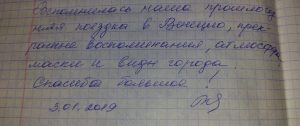 Вспомнилась наша прошлого-
дняя поездка в Венецию, прек-
расные воспоминания, атмосфера
маски и виды города.
Спасибо большое!
3.01.2019